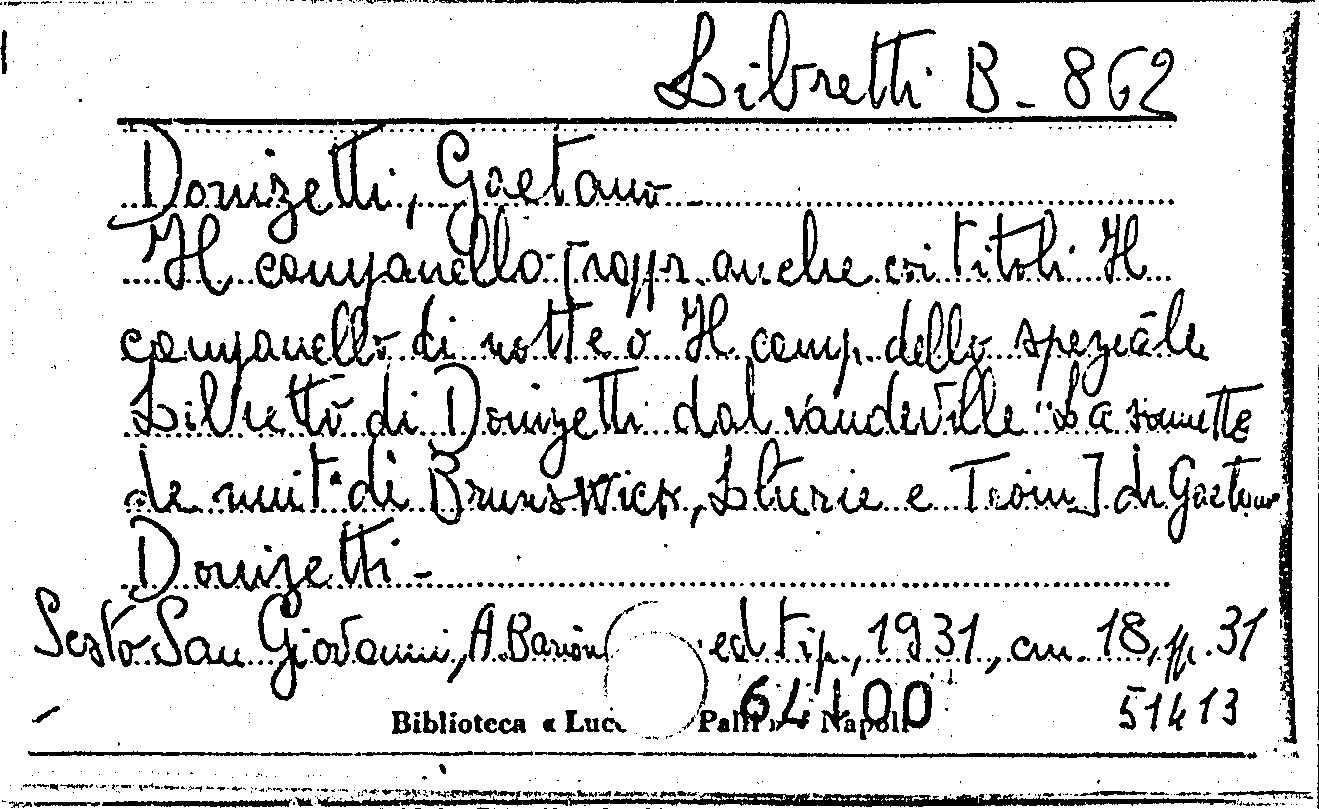 Libretti B - 862
Donizetti, Gaetano
Il campanello [rappr. anche coi titoli Il
campanello di notte o Il camp. dello speziale
Libretto di Donizetti dal vaudeville "La sonnette
de nuit" di Brunswick, Lhérie e Troin] di Gaetano
Donizetti -
Sesto San Giovanni, A. Barion ed tip., 1931, cm. 18, pp. 31
Biblioteca « Lucc Palli » Napoli
51413